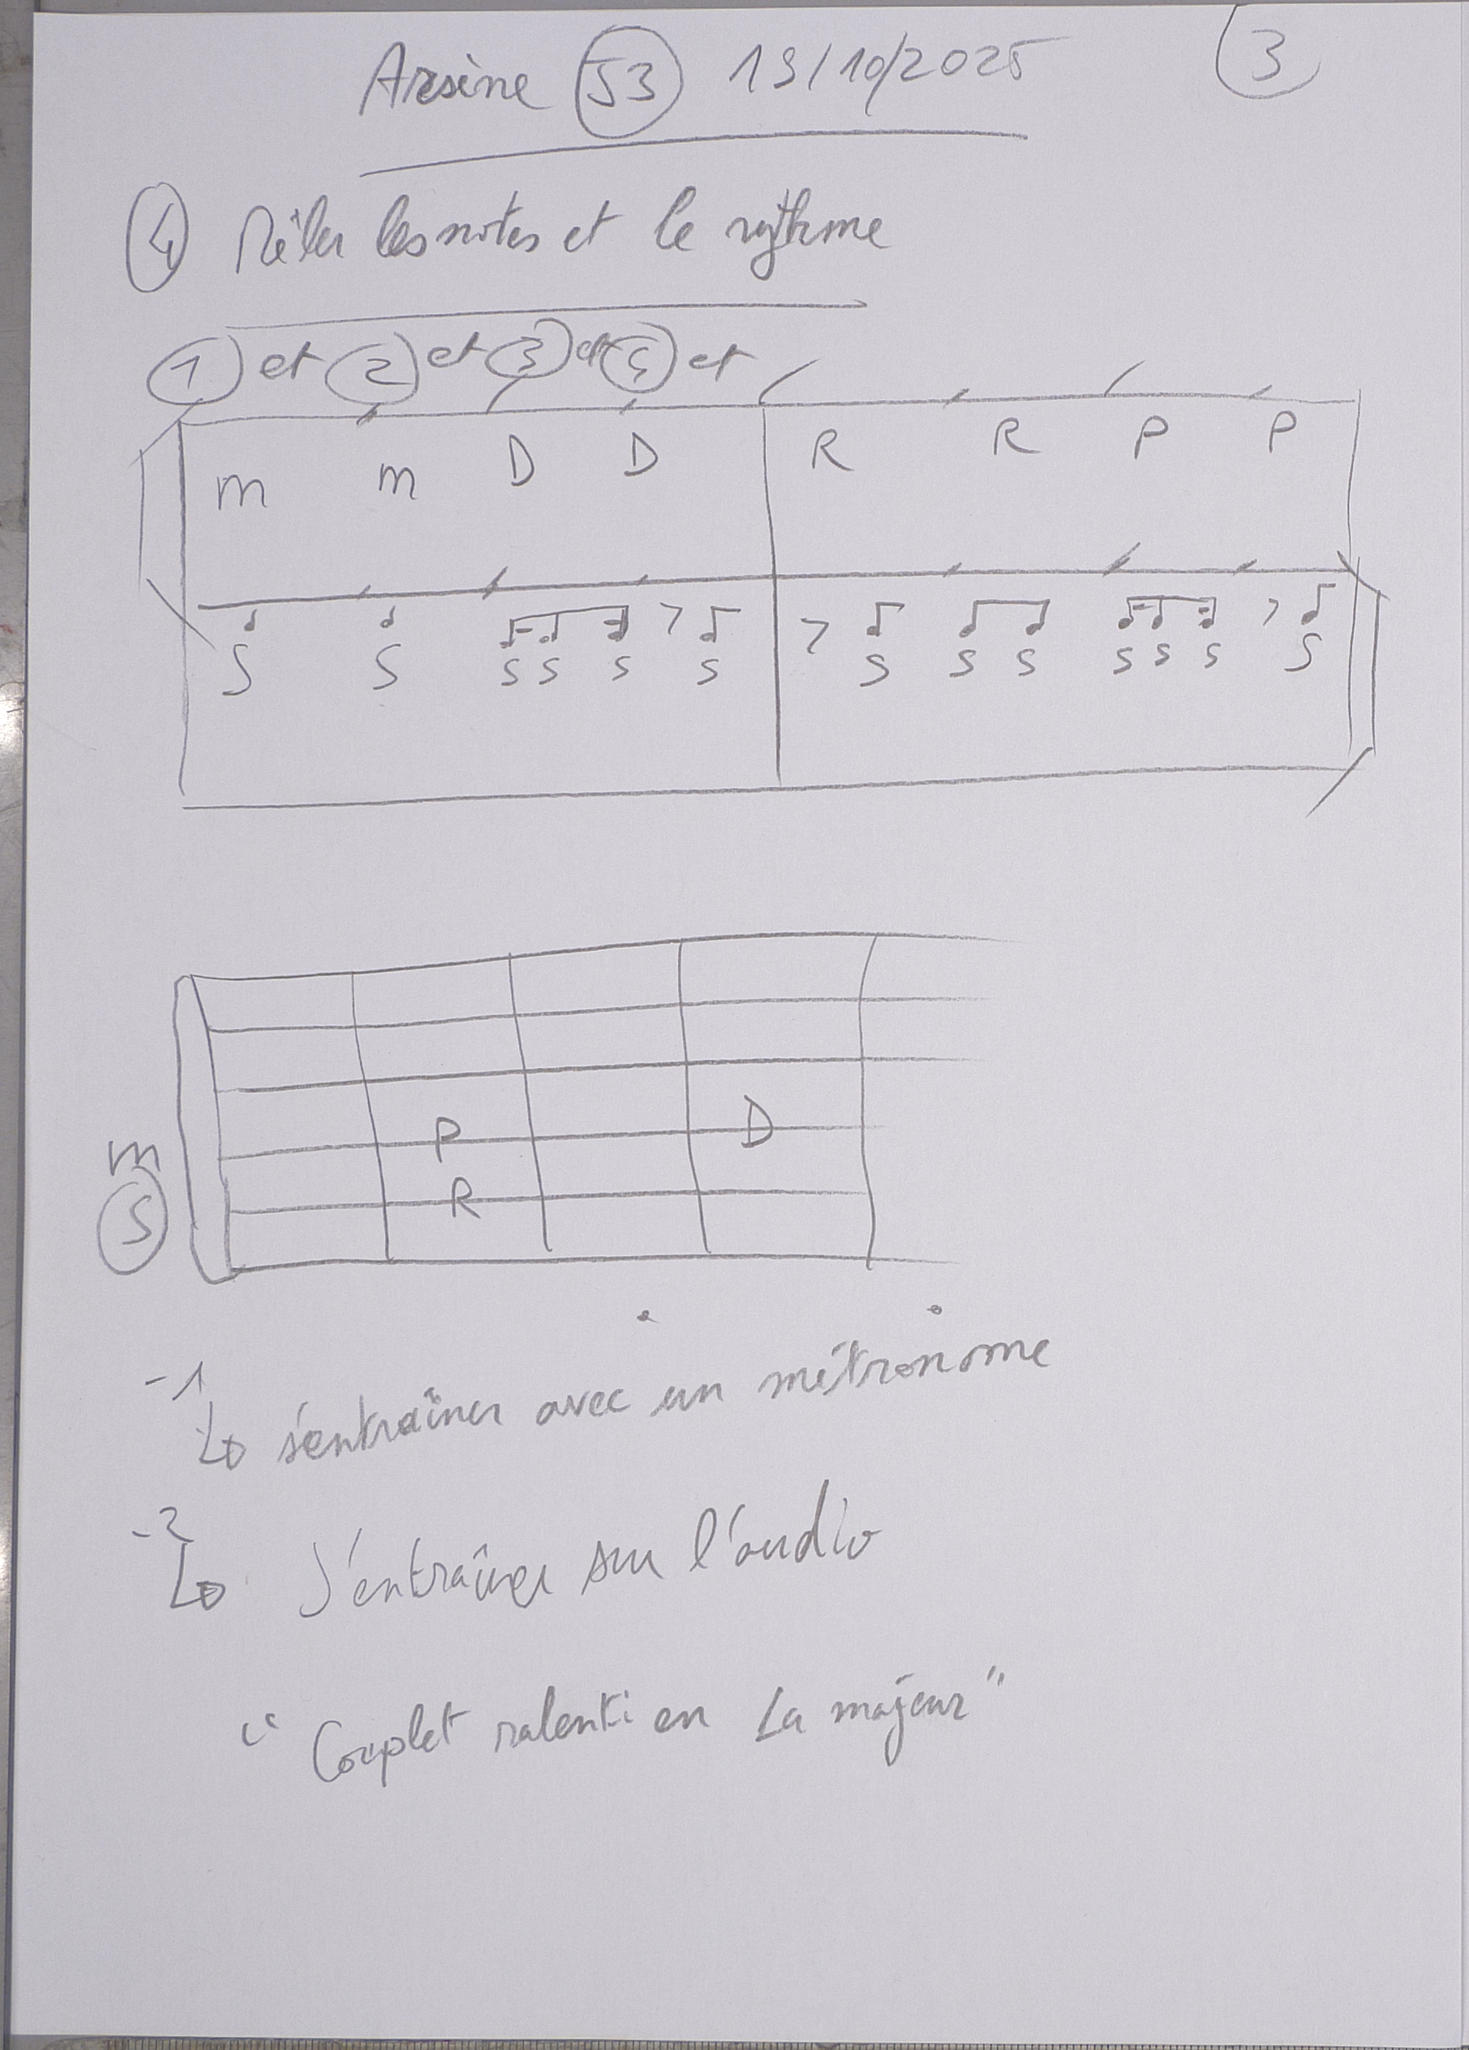 Arsène 53 19/10/2025 3
4 Mêler les notes et le rythme
1 et 2 et 3 et 4 et
m m D D R R P P
7 7 7
S S S S S S S S S S S S S
P D
m
R
S
-1
s'entraîner avec un métronome
-2
S'entraîner sur l'audio
"Couplet ralenti en La majeur"